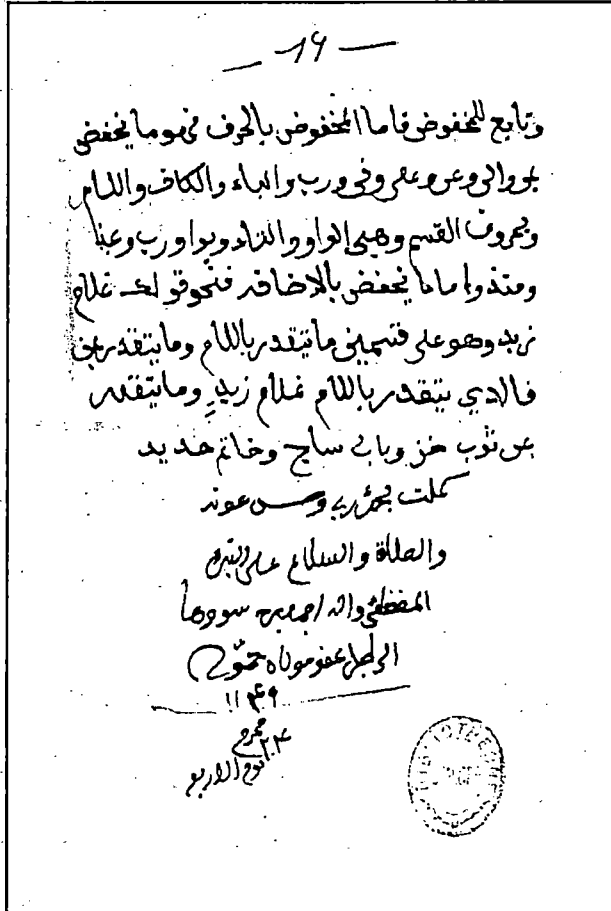 — 19 —
وتابع للمخفوض فاما المخفوض بالحرف فهو ما يخفض
بمن والى وعن وعلى وفي ورب والباء والكاف واللام
وبحروف القسم وهي الواو والباء والتاء وبواو رب وبمذ
ومنذ واما ما يخفض بالاضافه فنحو قولك غلام
زيد وهو على قسمين ما يتقدر باللام وما يتقدر بمن
فالدي يتقدر باللام غلام زيد وما يتقدر
بمن ثوب خز وباب ساج وخاتم حديد
كملت بحمد ربي وحسن عونه
والصلاة والسلام على النبي
المصطفى واله سودها
الراجي عفو مولاه حمود
١١٤٩
محرم ٢٤
يوم الاربع
BIBLIOTHE